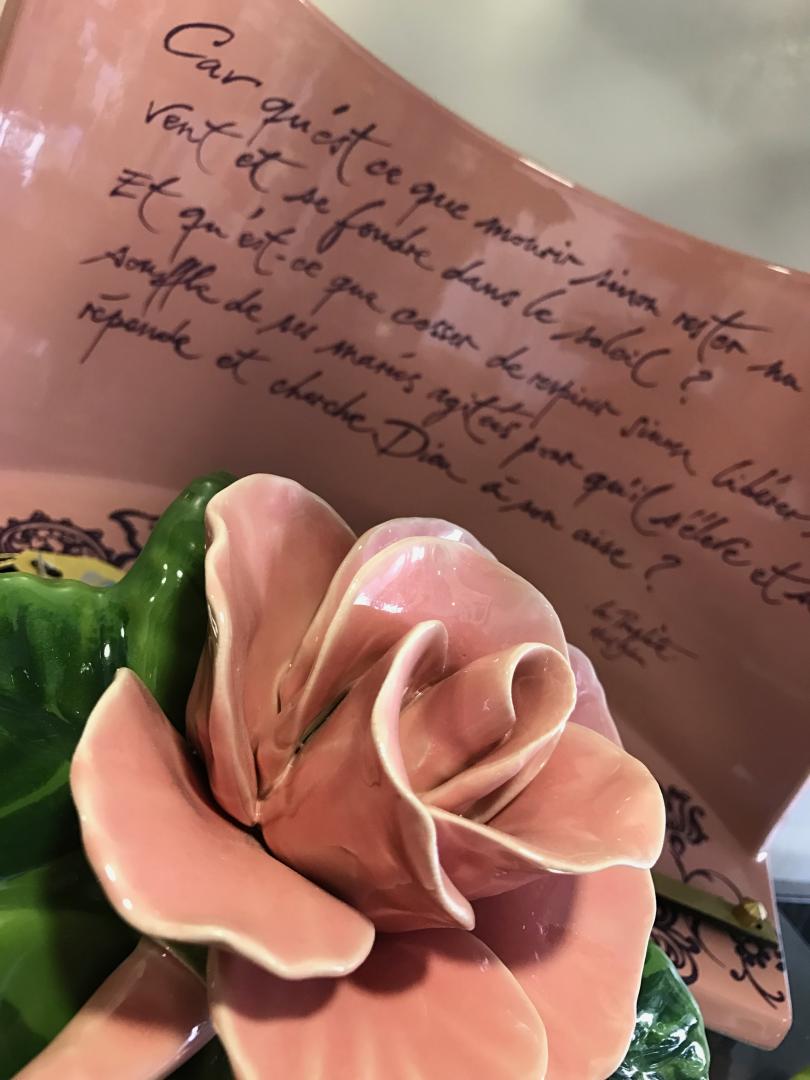 Car qu'est ce que mourir sinon rester nu
vent et se fondre dans le soleil ?
Et qu'est-ce que cesser de respirer sinon libérer
souffle de ses marées agitées pour qu'il s'élève et
répende et cherche Dieu à son aise ?
le Prophète